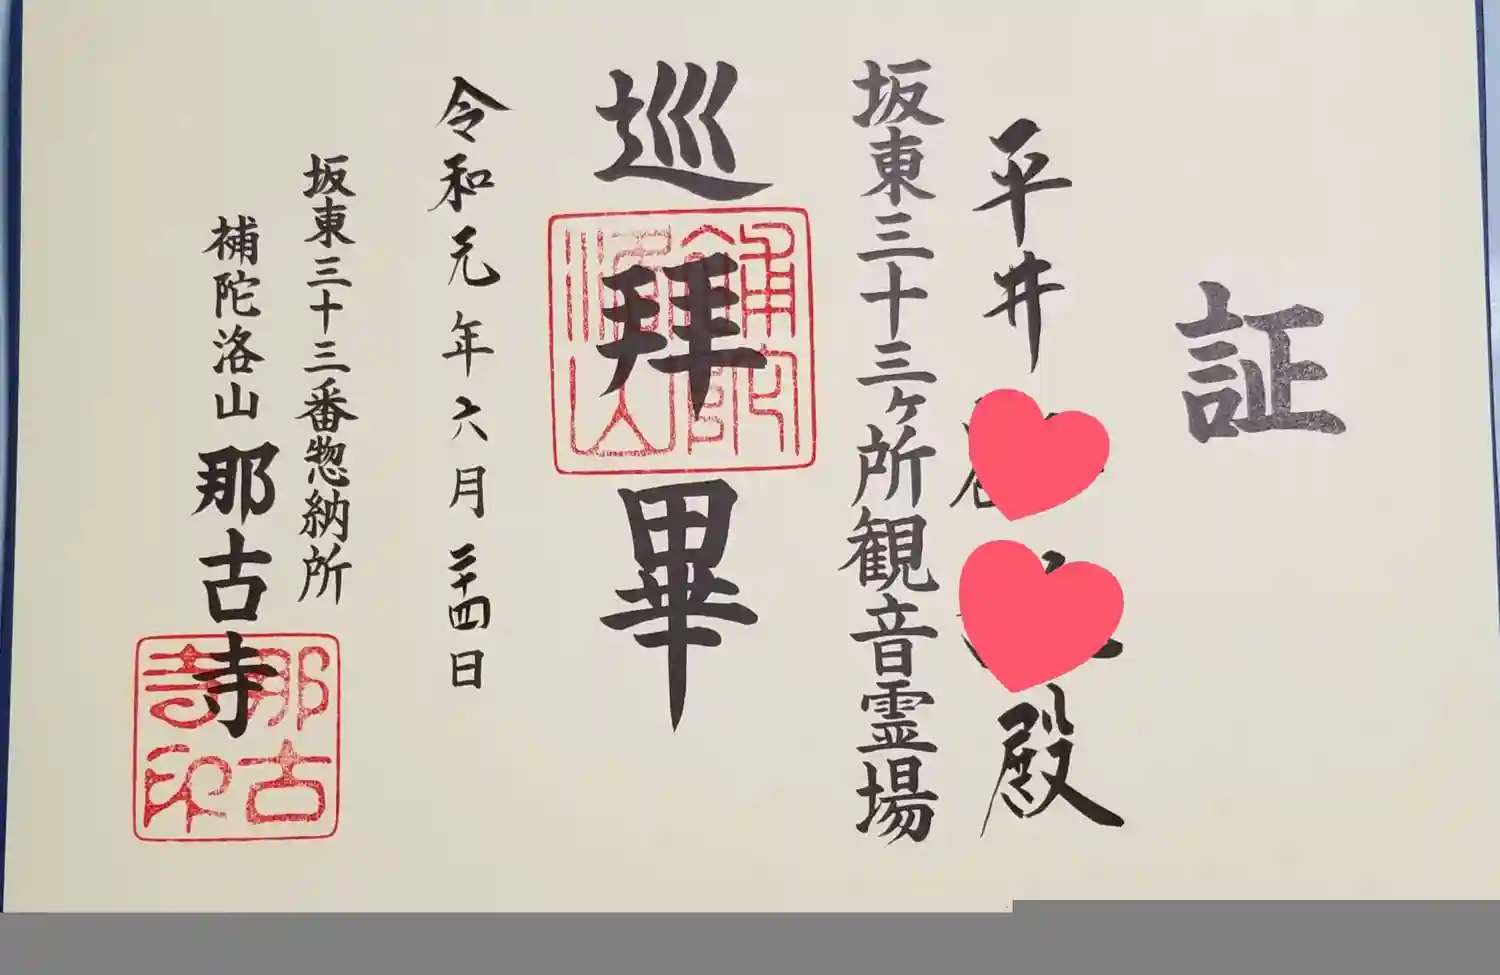 証
平井
殿
坂東三十三ヶ所観音霊場
巡拝畢
令和元年六月二十四日
坂東三十三番惣納所
補陀洛山 那古寺
那古寺印